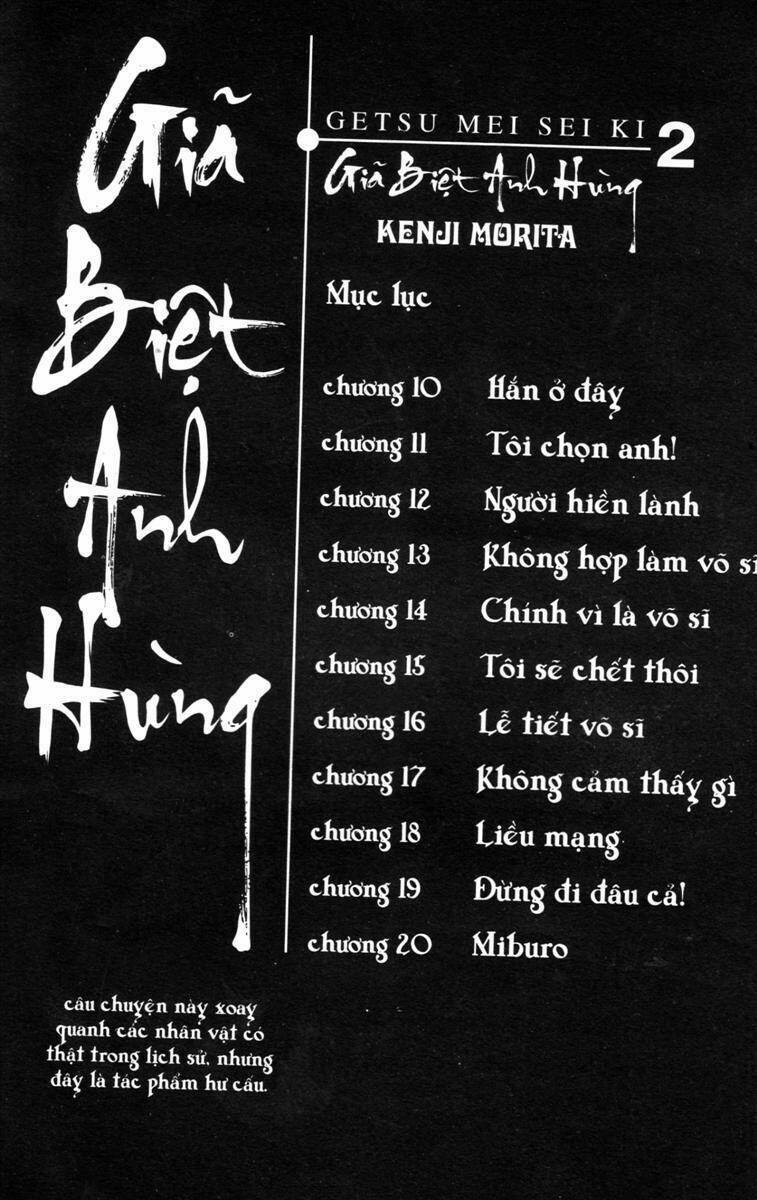 Giã
Biệt
Anh
Hùng
GETSU MEI SEI KI 2
Giã Biệt Anh Hùng
KENJI MORITA
Mục lục
chương 10 Hắn ở đây
chương 11 Tôi chọn anh!
chương 12 Người hiền lành
chương 13 Không hợp làm võ sĩ
chương 14 Chính vì là võ sĩ
chương 15 Tôi sẽ chết thôi
chương 16 Lễ tiết võ sĩ
chương 17 Không cảm thấy gì
chương 18 Liều mạng
chương 19 Đừng đi đâu cả!
chương 20 Miburo
câu chuyện này xoay
quanh các nhân vật có
thật trong lịch sử, nhưng
đây là tác phẩm hư cấu.